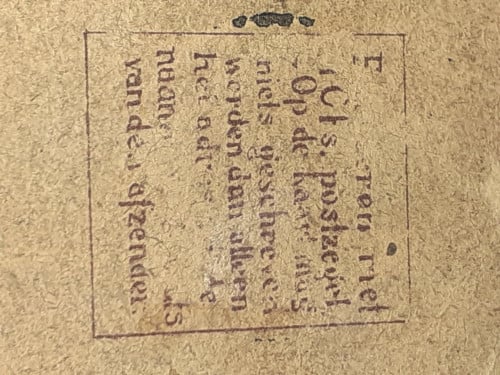 F…eren met
Cts. postzegel
Op de kaart mag
niets geschreven
werden dan alleen
het adres … de
naam … als
van den afzender.